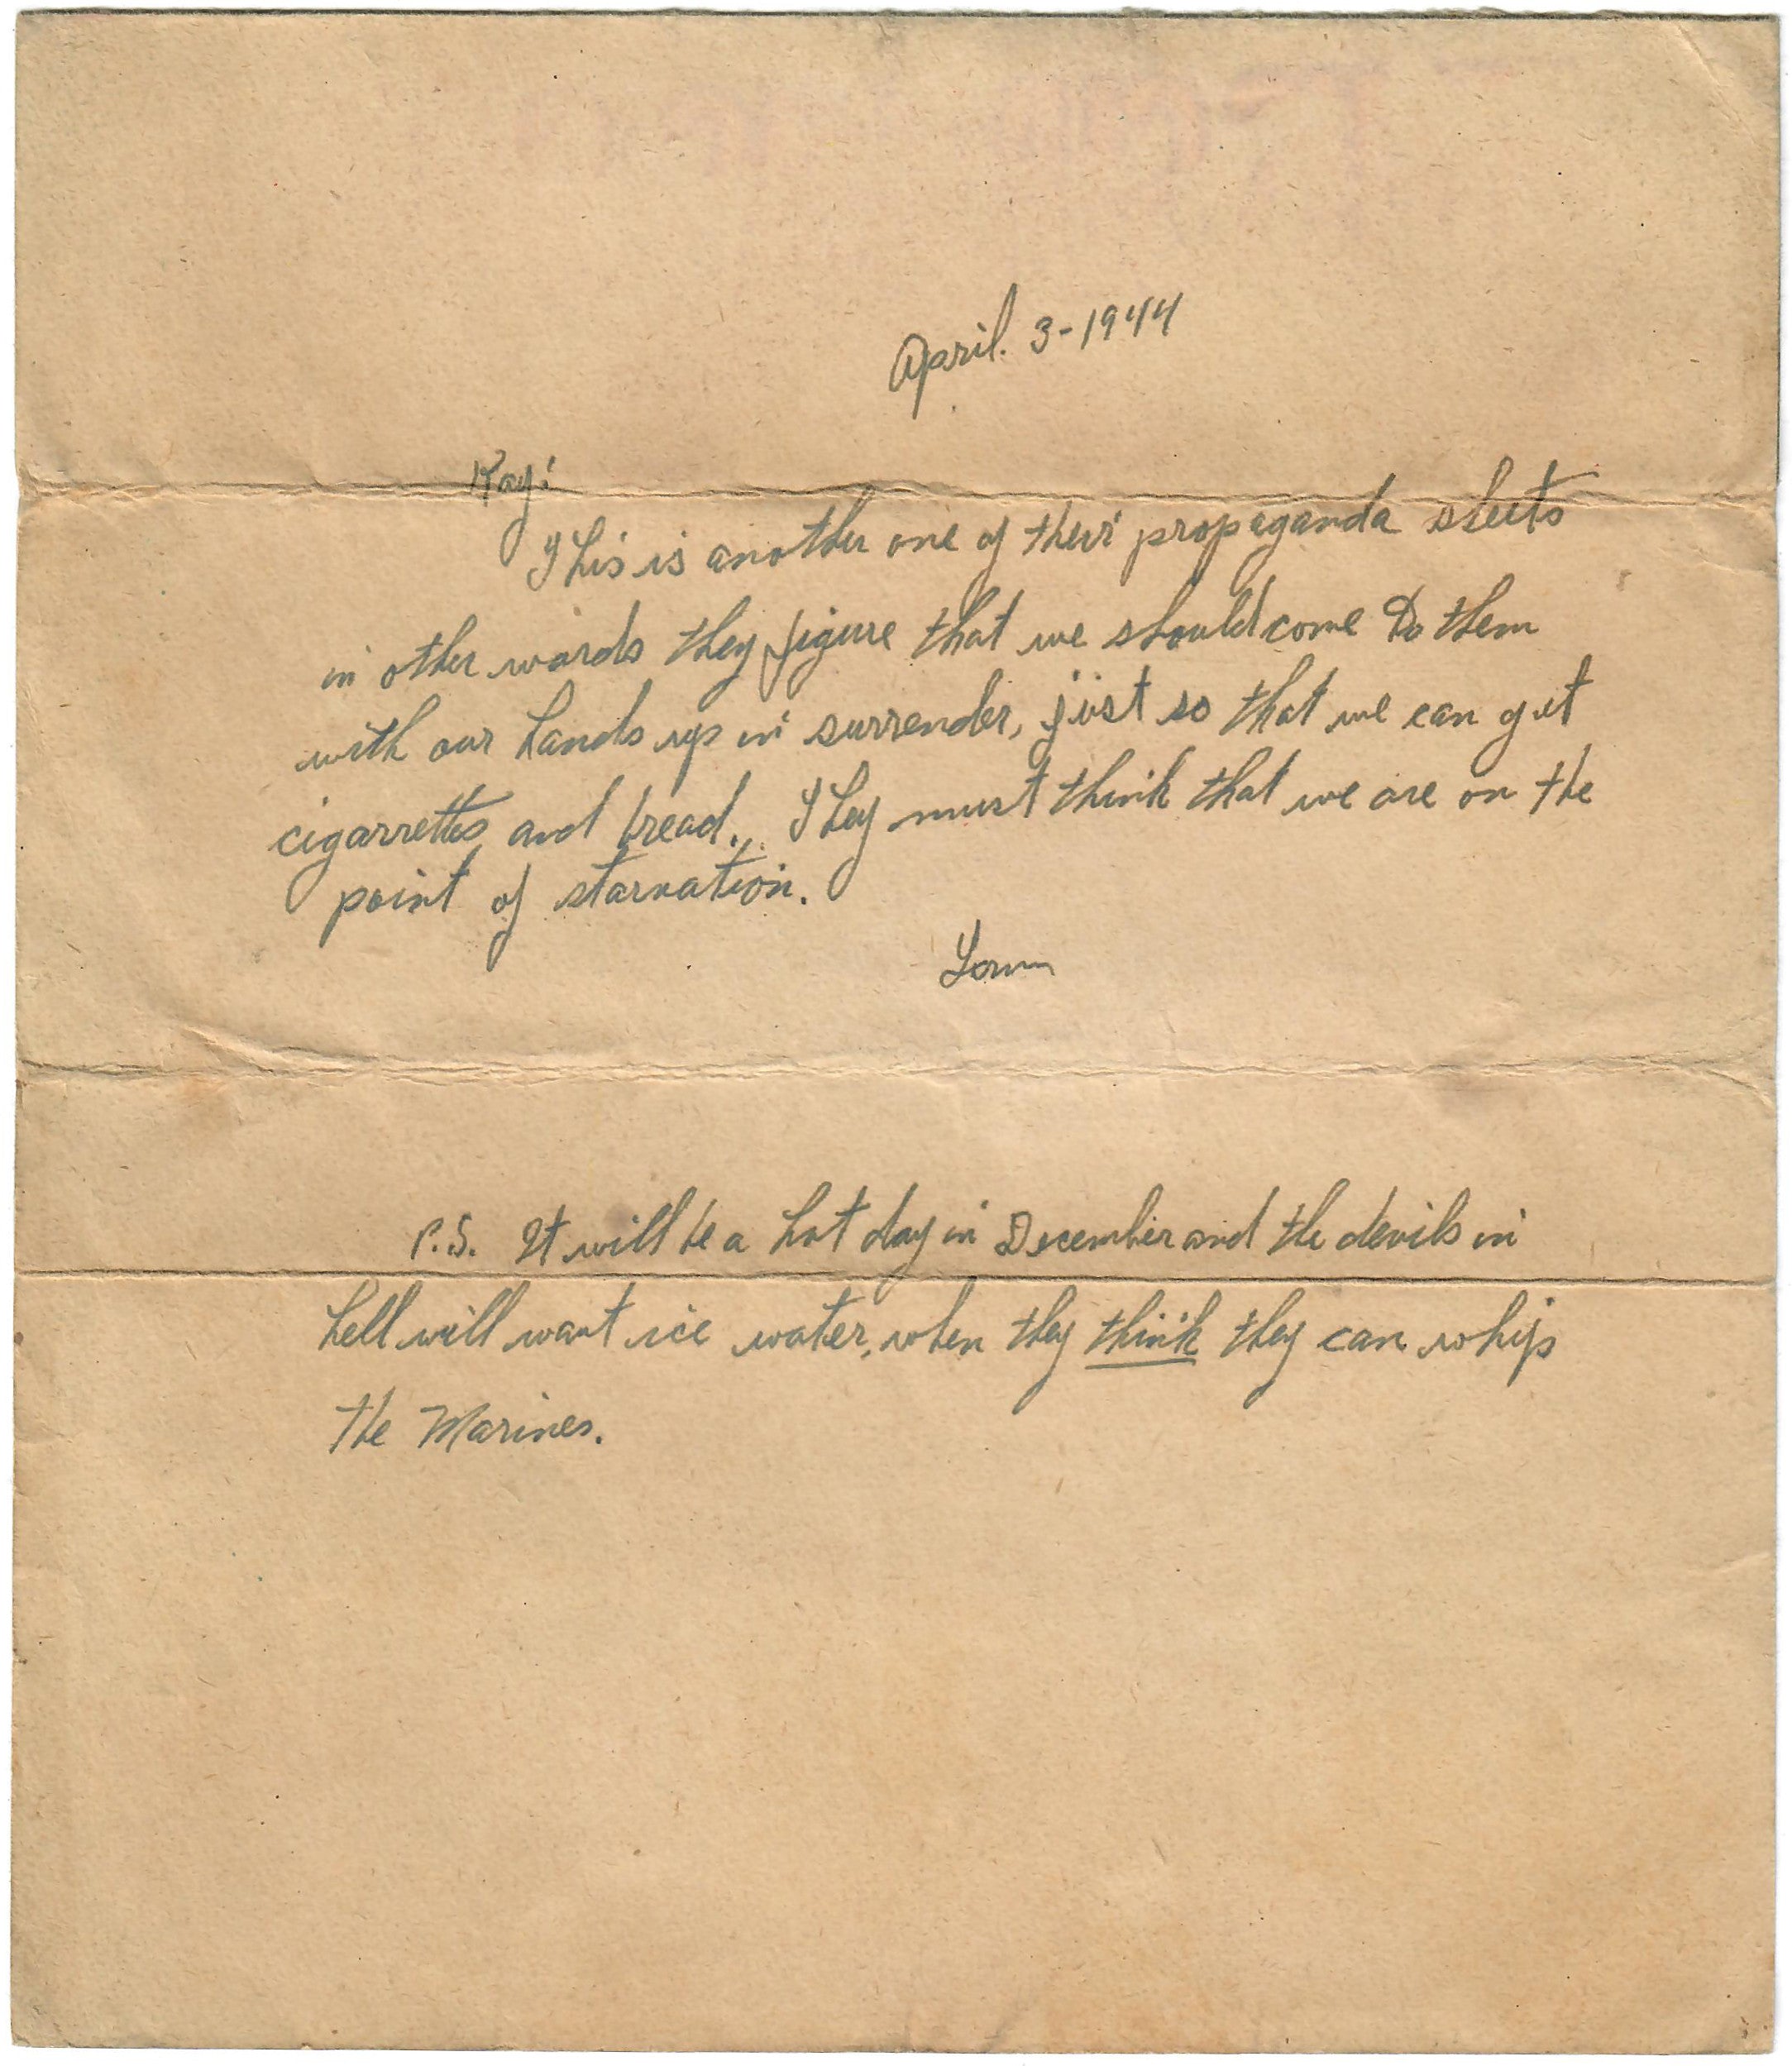 April. 3-1944
Kay:
This is another one of their propaganda sheets
in other words they figure that we should come to them
with our hands up in surrender, just so that we can get
cigarrettes and bread. They must think that we are on the
point of starvation.
P.S. It will be a hot day in December and the devils in
hell will want ice water, when they think they can whip
the Marines.